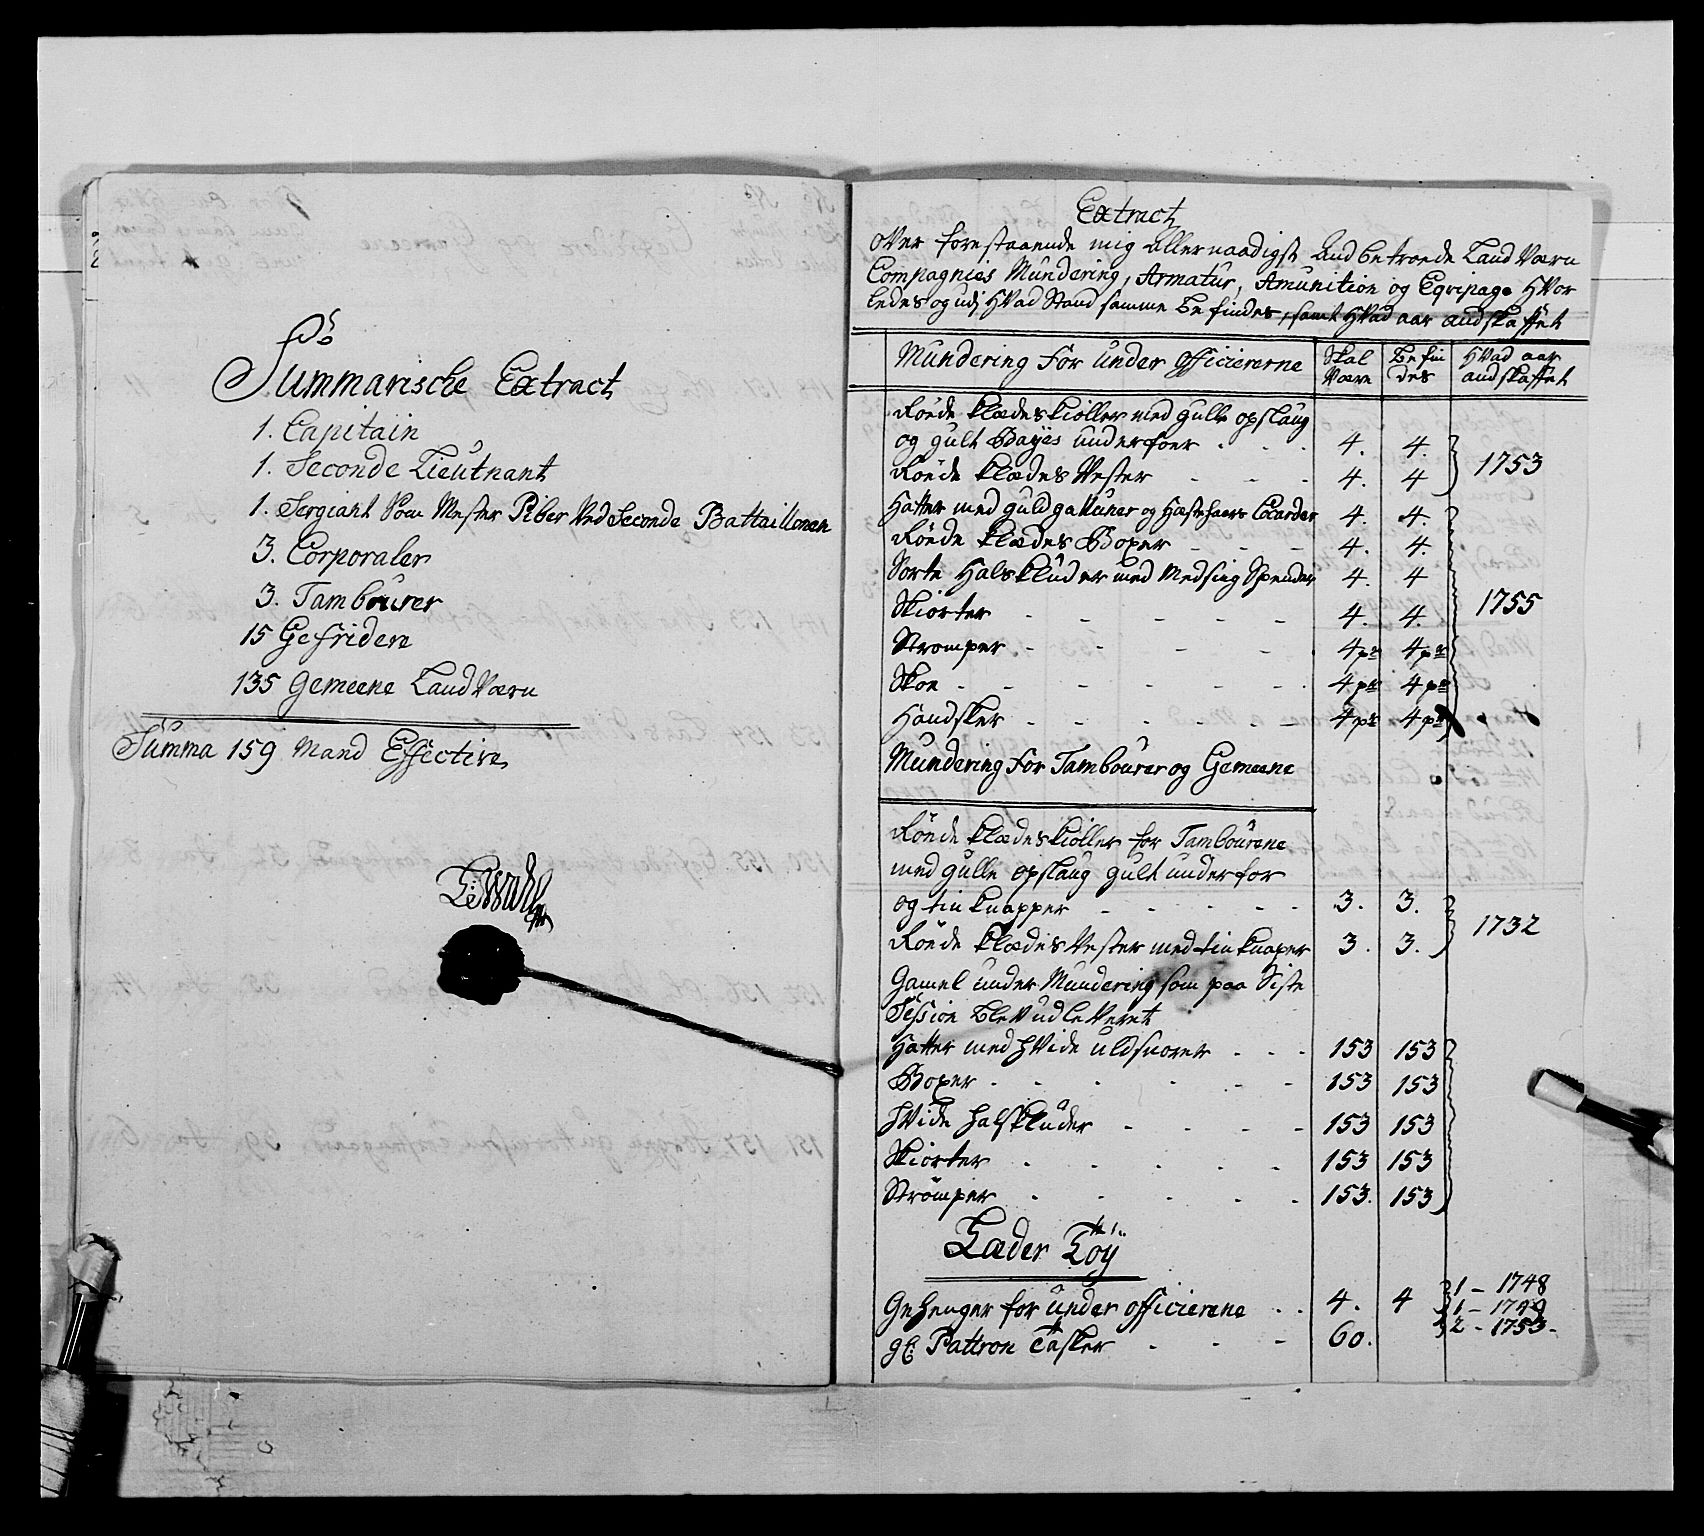 Summarische Extract
1. Capitain
1. Seconde Lieutnant
1. Sergiant Som Mester Piber Ved Seconde Battaillonen
3. Corporaler
3. Tambourer
15 Gefridere
135 Gemeene Land Værn
Summa 159 Mand Effective
Extract
over forestaaende mig allernaadigst andbetroede Land Værn
Compagnies Mundering, Armatur, Amunition og Eqvipage Hvor
ledes og udj Hvad Stand samme Befindes, samt Hvad aar andskaffet
Mundering For Under Officiererne
Skal Være
Befindes
Hvad aar andskaffet
Røede klædes kioller med gulle opslaug
og gult Bayes underfoer . . . 4. 4.
1753
Røede klædes Vester - - - 4. 4
Hatter med guld galluner og Hæstehaars Cocarder 4. 4.
Røede klædes Boxer - - - 4. 4.
Sorte Halskluder med Medsing Spender 4. 4
1755
Skiorter - - - - - 4. 4.
Strømper - - - - - 4 pr 4 pr
Skoe - - - - - - 4 pr 4 pr
Handsker - - - - - 4 pr 4 pr
Mundering For Tambourer og Gemeene
Røede klædes kioller for Tambourene
med gulle opslaug gult underfor
og tin knapper - - - - - 3. 3.
1732
Røede klædes Vester med tin knaper 3. 3.
Gamel under Mundering som paa Siste
Session blev udleveret
Hatter med hvide uldsnorer - - - 153 153
Boxer - - - - - - 153 153
Hvide halskluder - - - - 153 153
Skiorter - - - - - 153 153
Strømper - - - - - 153. 153
Læder Töy
Gehenger for under officierene . . 4. 4
1 - 1748
1 - 1749
2 - 1753 -
gl: Pattron Tasker - - - 60.